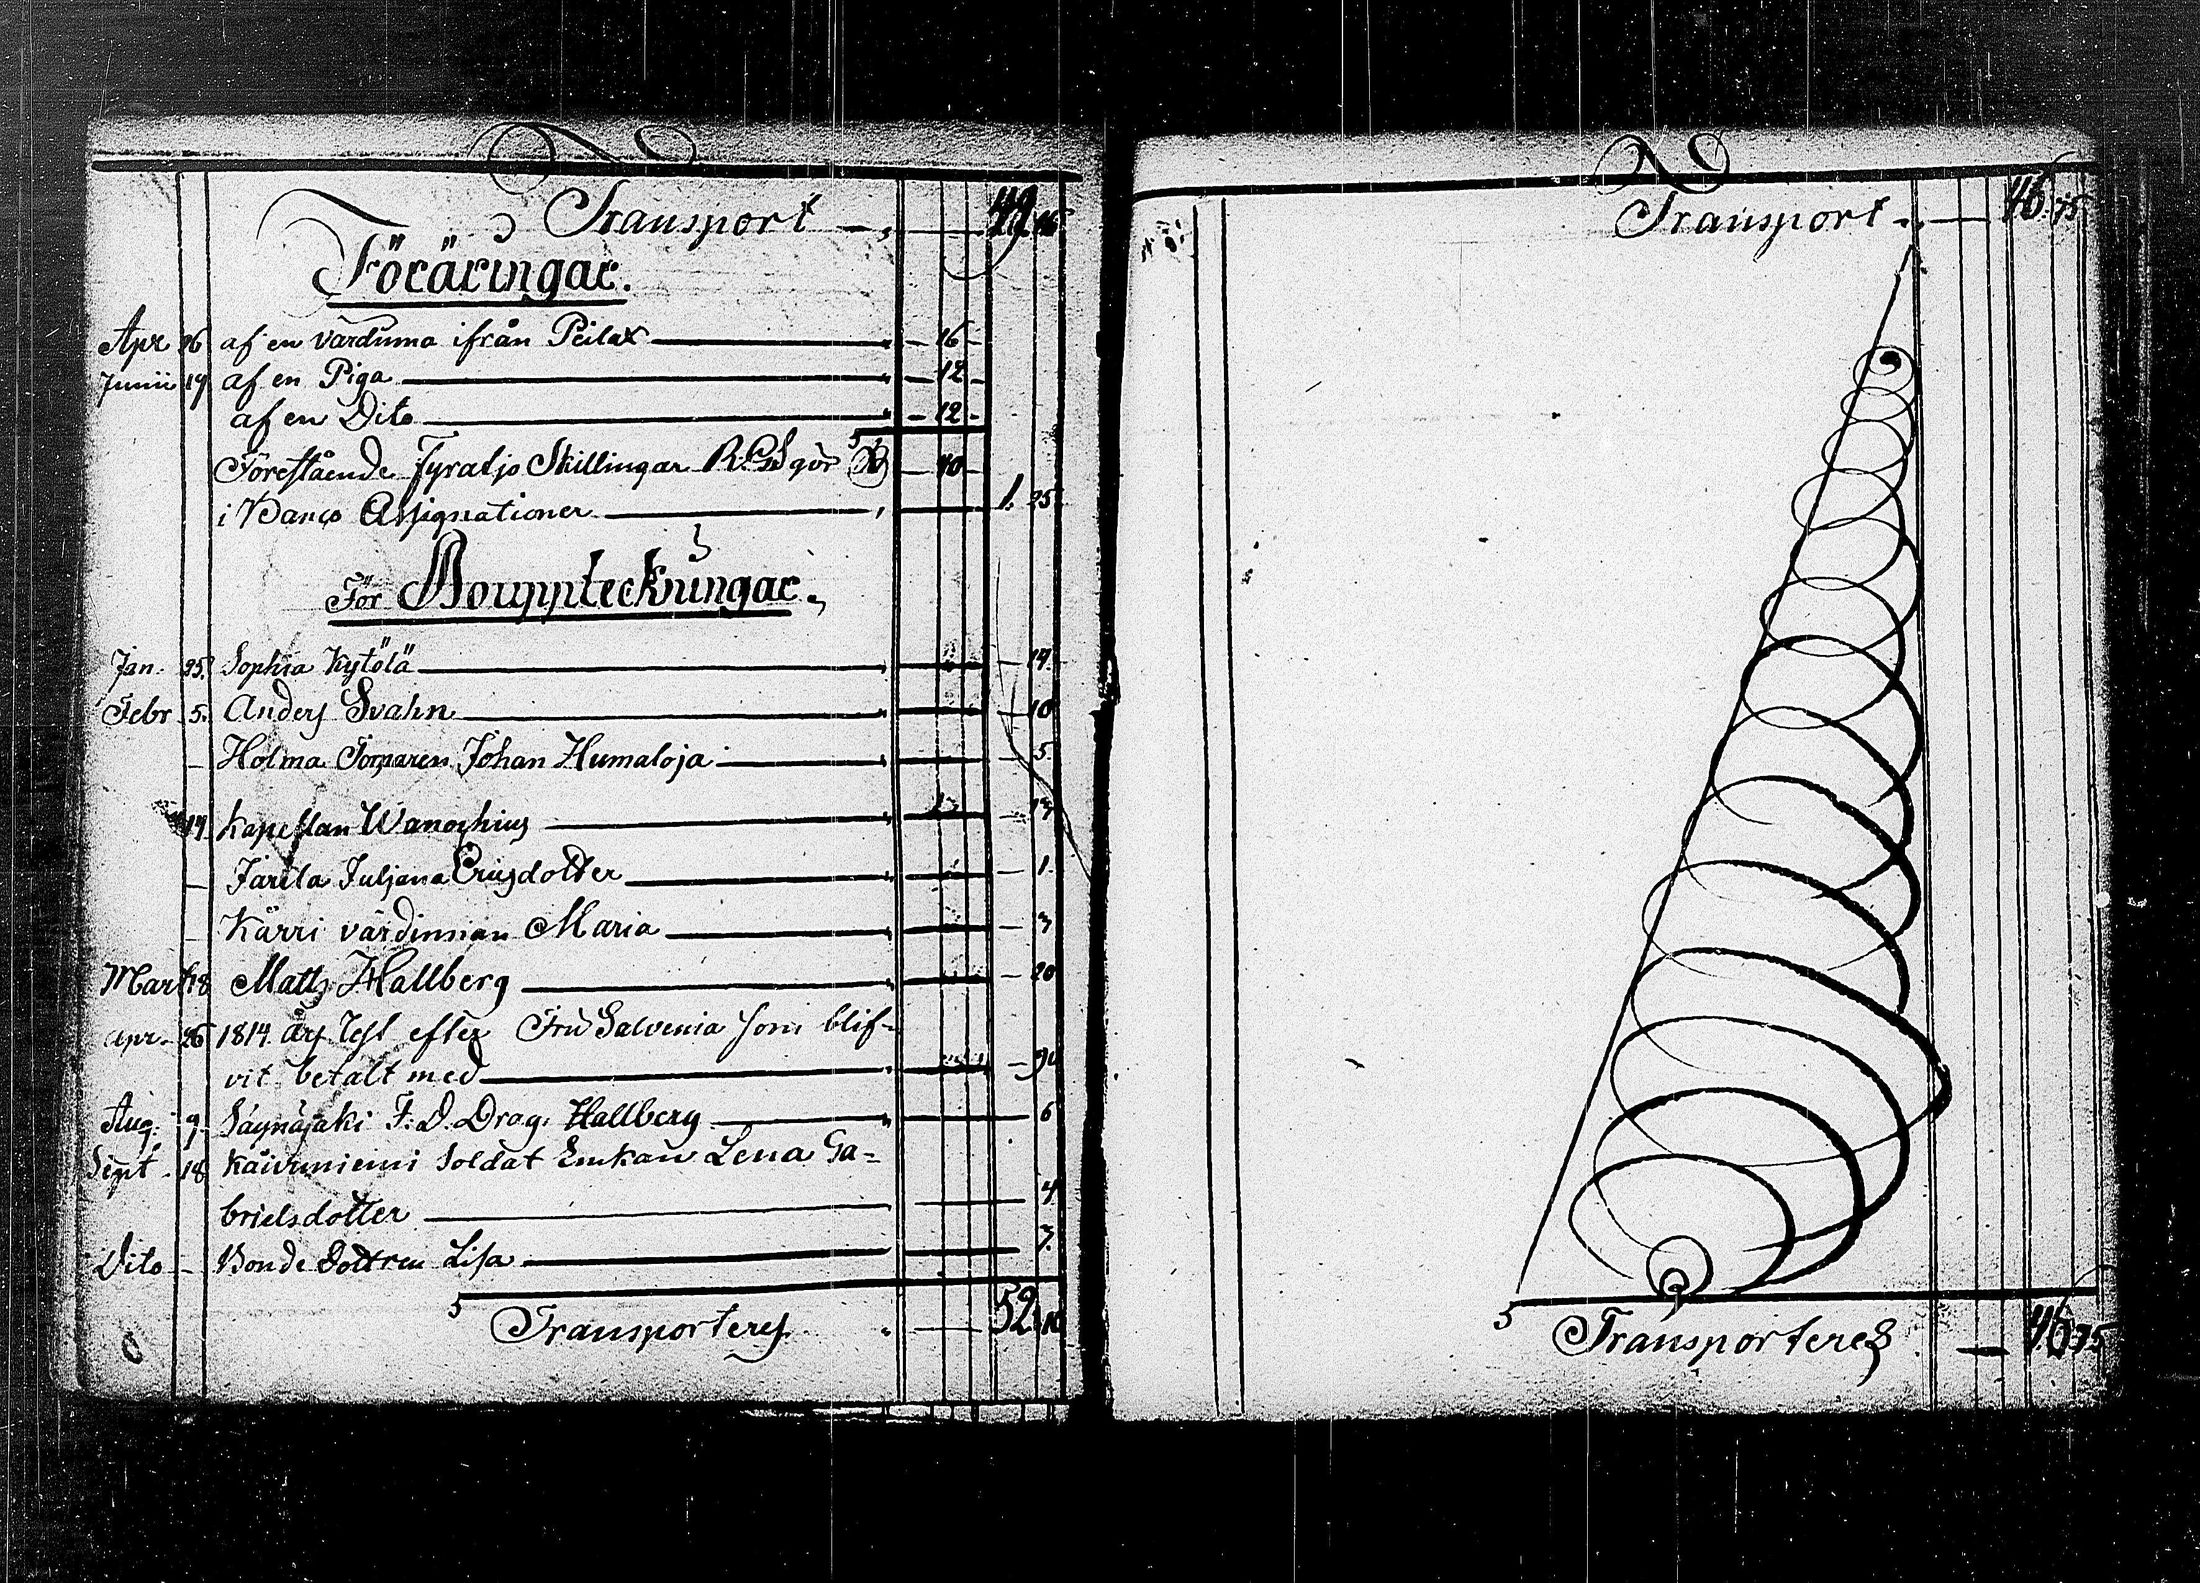 Transport 49.
Föräringar.
Apr 26 af en värduma ifrån Peilax 16
Junii 19 af en Piga 12
af en Dito 12
Förestående Fyratjo Skillingar R.G.S gör 40
i Banco Assignationer 1. 25
För Bouppteckningar.
Jan. 25. Sophia Kytölä
Febr 5. Anders Svahn 10
Holma Torparen Johan Humaloja 5
Kapellan Wanochius
Jarila Juljana Ericsdotter 1.
Kärri värdinnan Maria 3
Mart 18 Matts Hallberg 20
Apr. 26 1814 års Test efter Fru Salvenia som blif-
vit betalt med
Aug. 9. Säynäjäki F.D. Drag. Hallberg 6
Sept. 18 Kaivuniemi Soldat Enkan Lena Ga=
brielsdotter 4
Dito Bonde Dottren Lisa 3.
Transporteres 52.
Transport 46.75
Transporteres 46.75